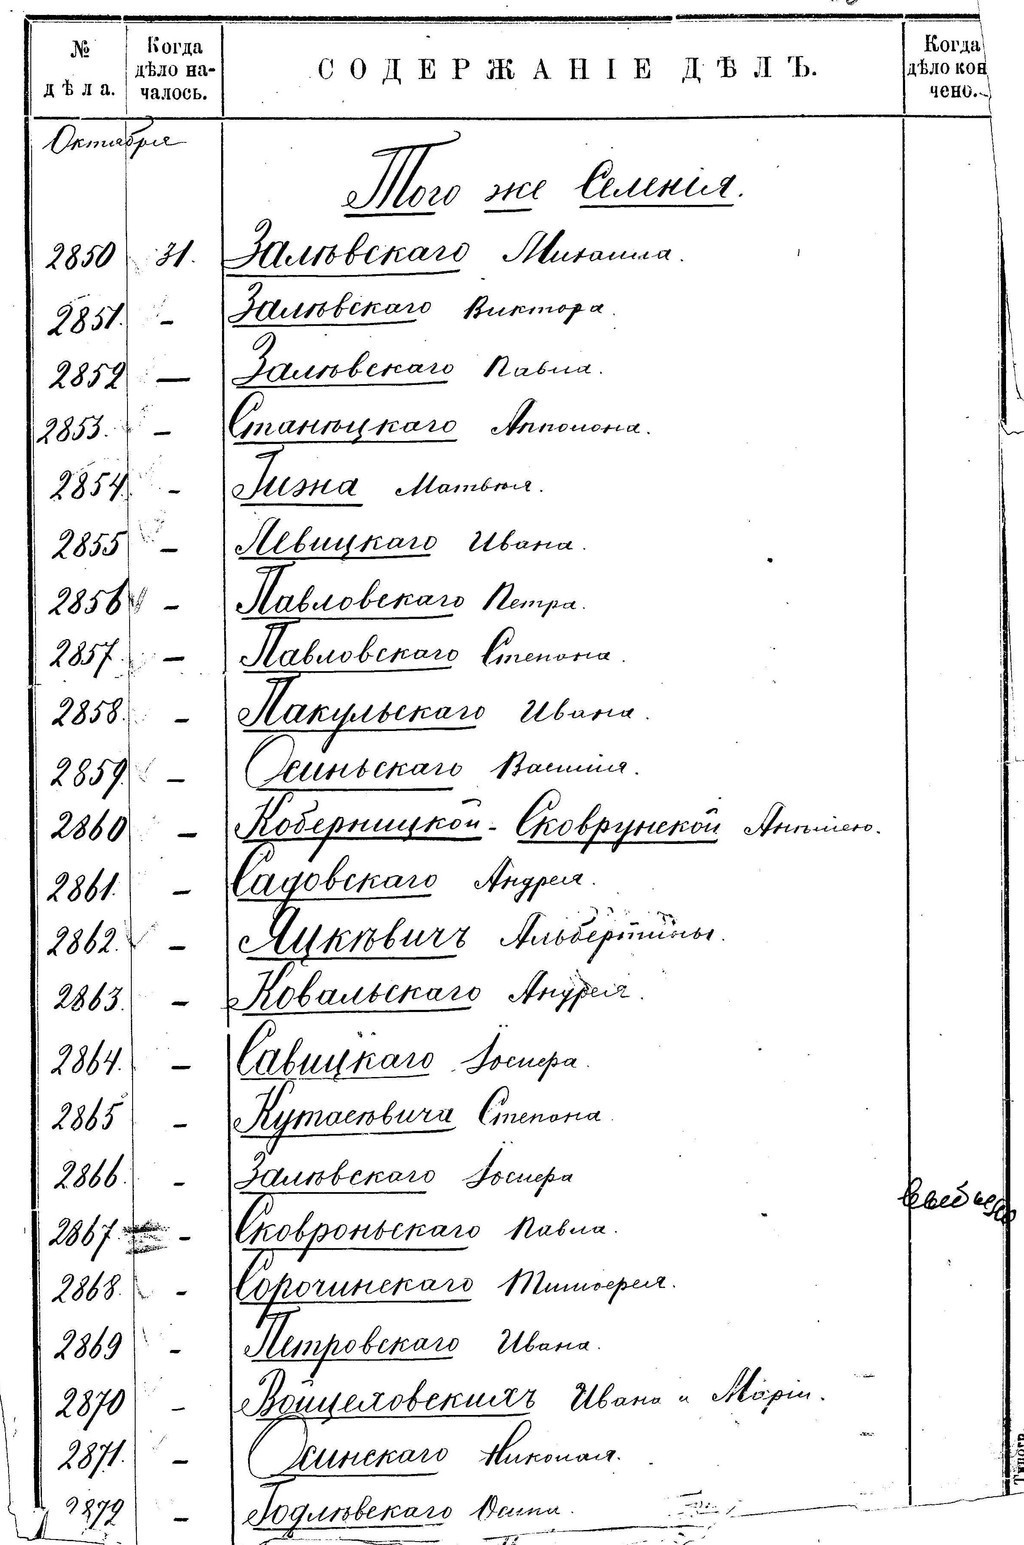 № дѣла. Когда дѣло началось. СОДЕРЖАНІЕ ДѢЛЪ. Когда дѣло кон чено.
Октября
Того же Селенія.
2850 31. Залѣвскаго Михаила.
2851. – Залѣвскаго Виктора.
2852 – Залѣвскаго Павла.
2853. – Станѣцкаго Апполона.
2854 – Гижа Матвѣя.
2855 – Левицкаго Ивана.
2856 – Павловскаго Петра.
2857. – Павловскаго Степана.
2858. – Пакульскаго Ивана.
2859. – Осиньскаго Василія.
2860 – Коберницкой-Сковрунской
2861. – Садовскаго Андрея.
2862. – Яцкѣвичъ Альбертины.
2863. – Ковальскаго Андрея.
2864. – Савицкаго Іосифа.
2865 – Степана.
2866. – Залѣвскаго Іосифа
2867. – Сковроньскаго Павла.
2868. – Сорочинскаго Тимофея.
2869 – Петровскаго Ивана.
2870 – Войцеховскихъ Ивана и Маріи.
2871. – Осинскаго Николая.
2872 – Годлѣвскаго Осипа.